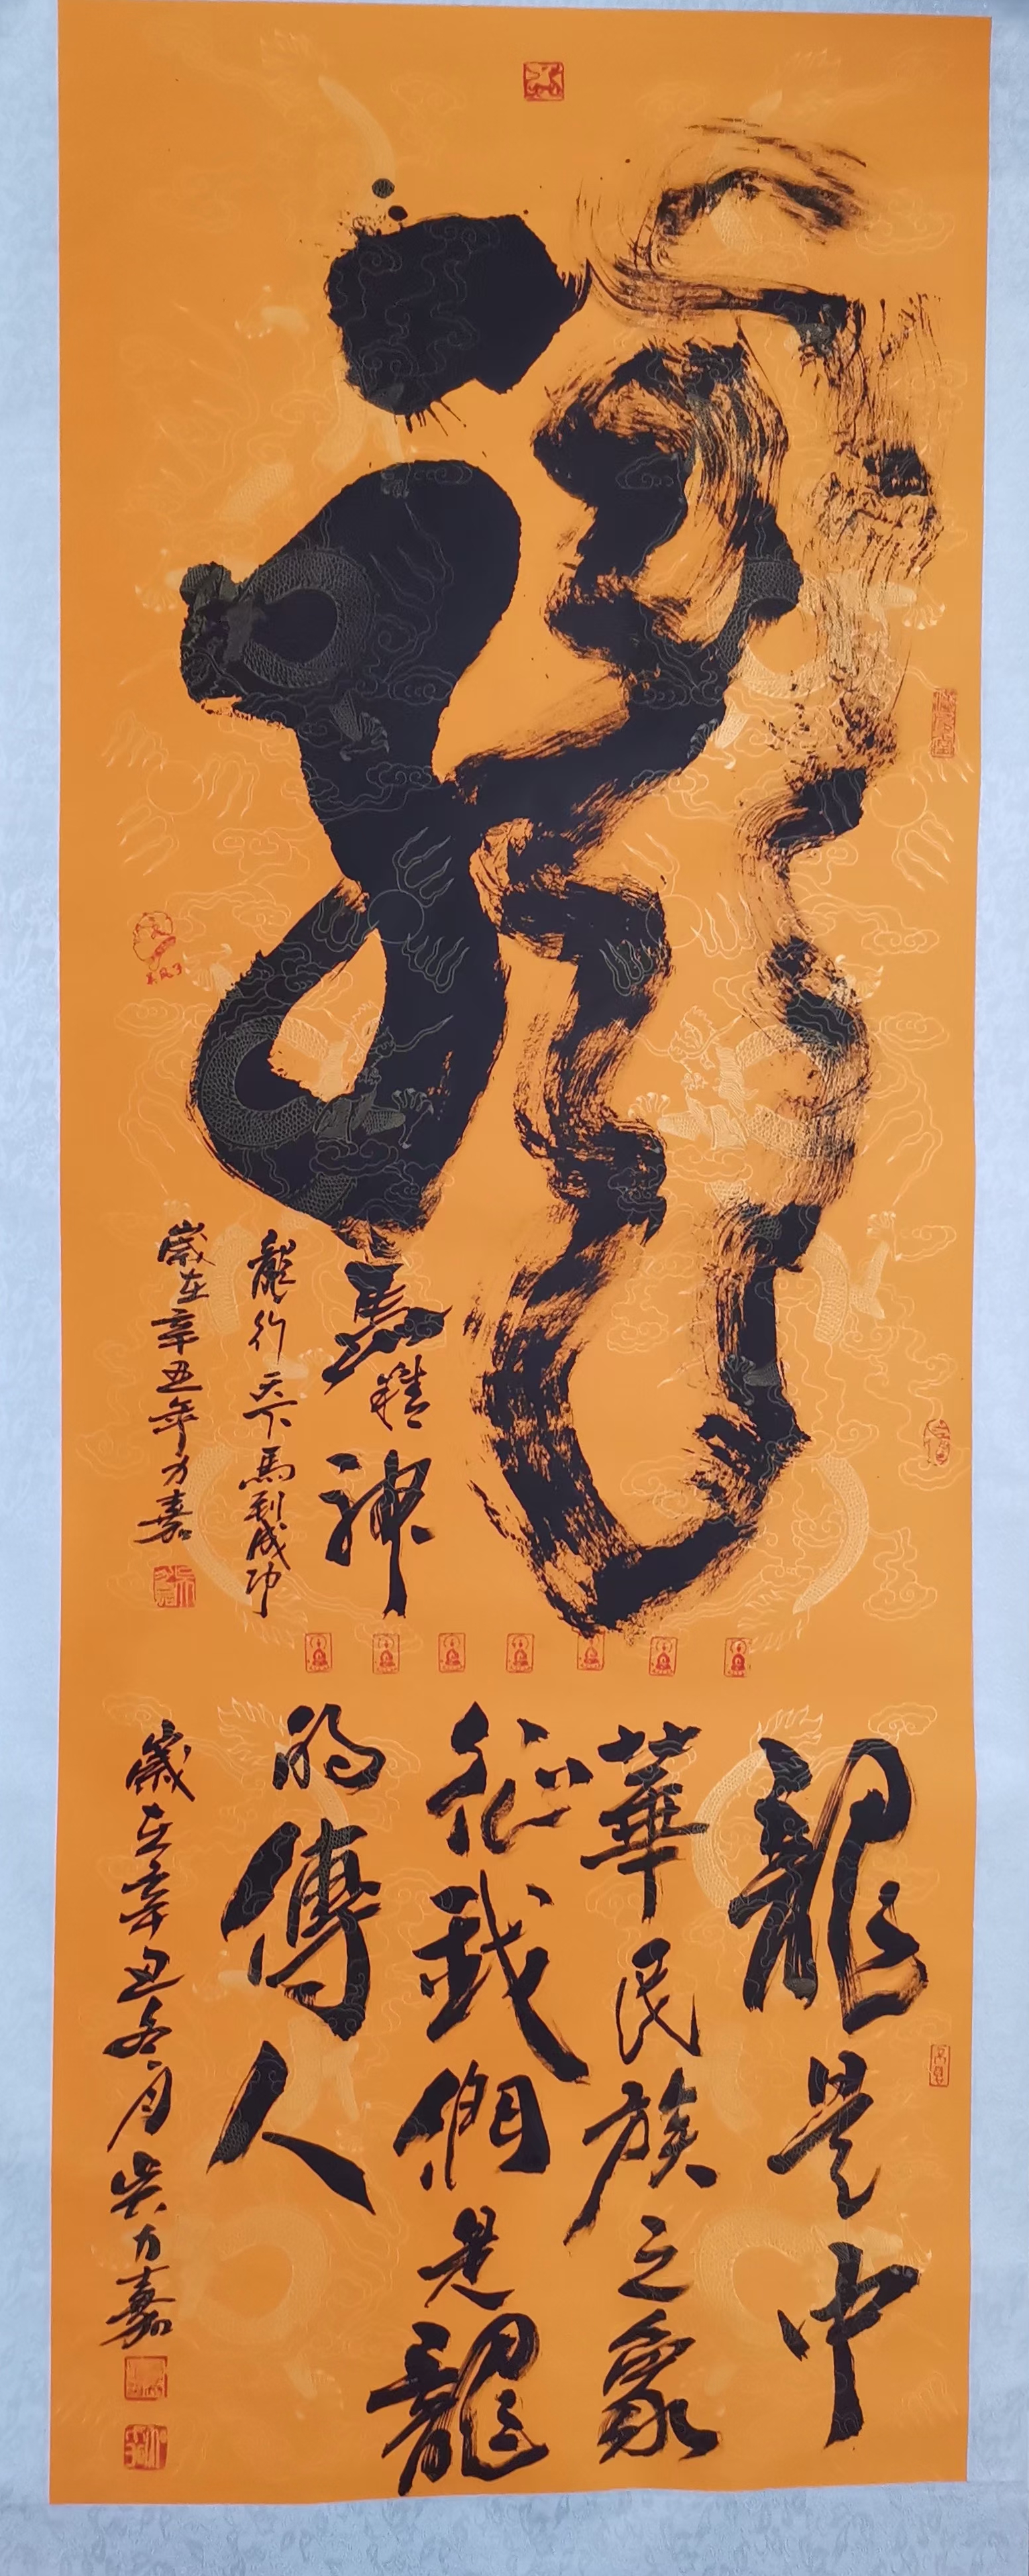 龍
馬精神
龍行天下馬到成功
歲在辛丑年力嘉
龍是中
華民族之象
征我們是龍
的傳人
歲在辛丑冬月吴力嘉